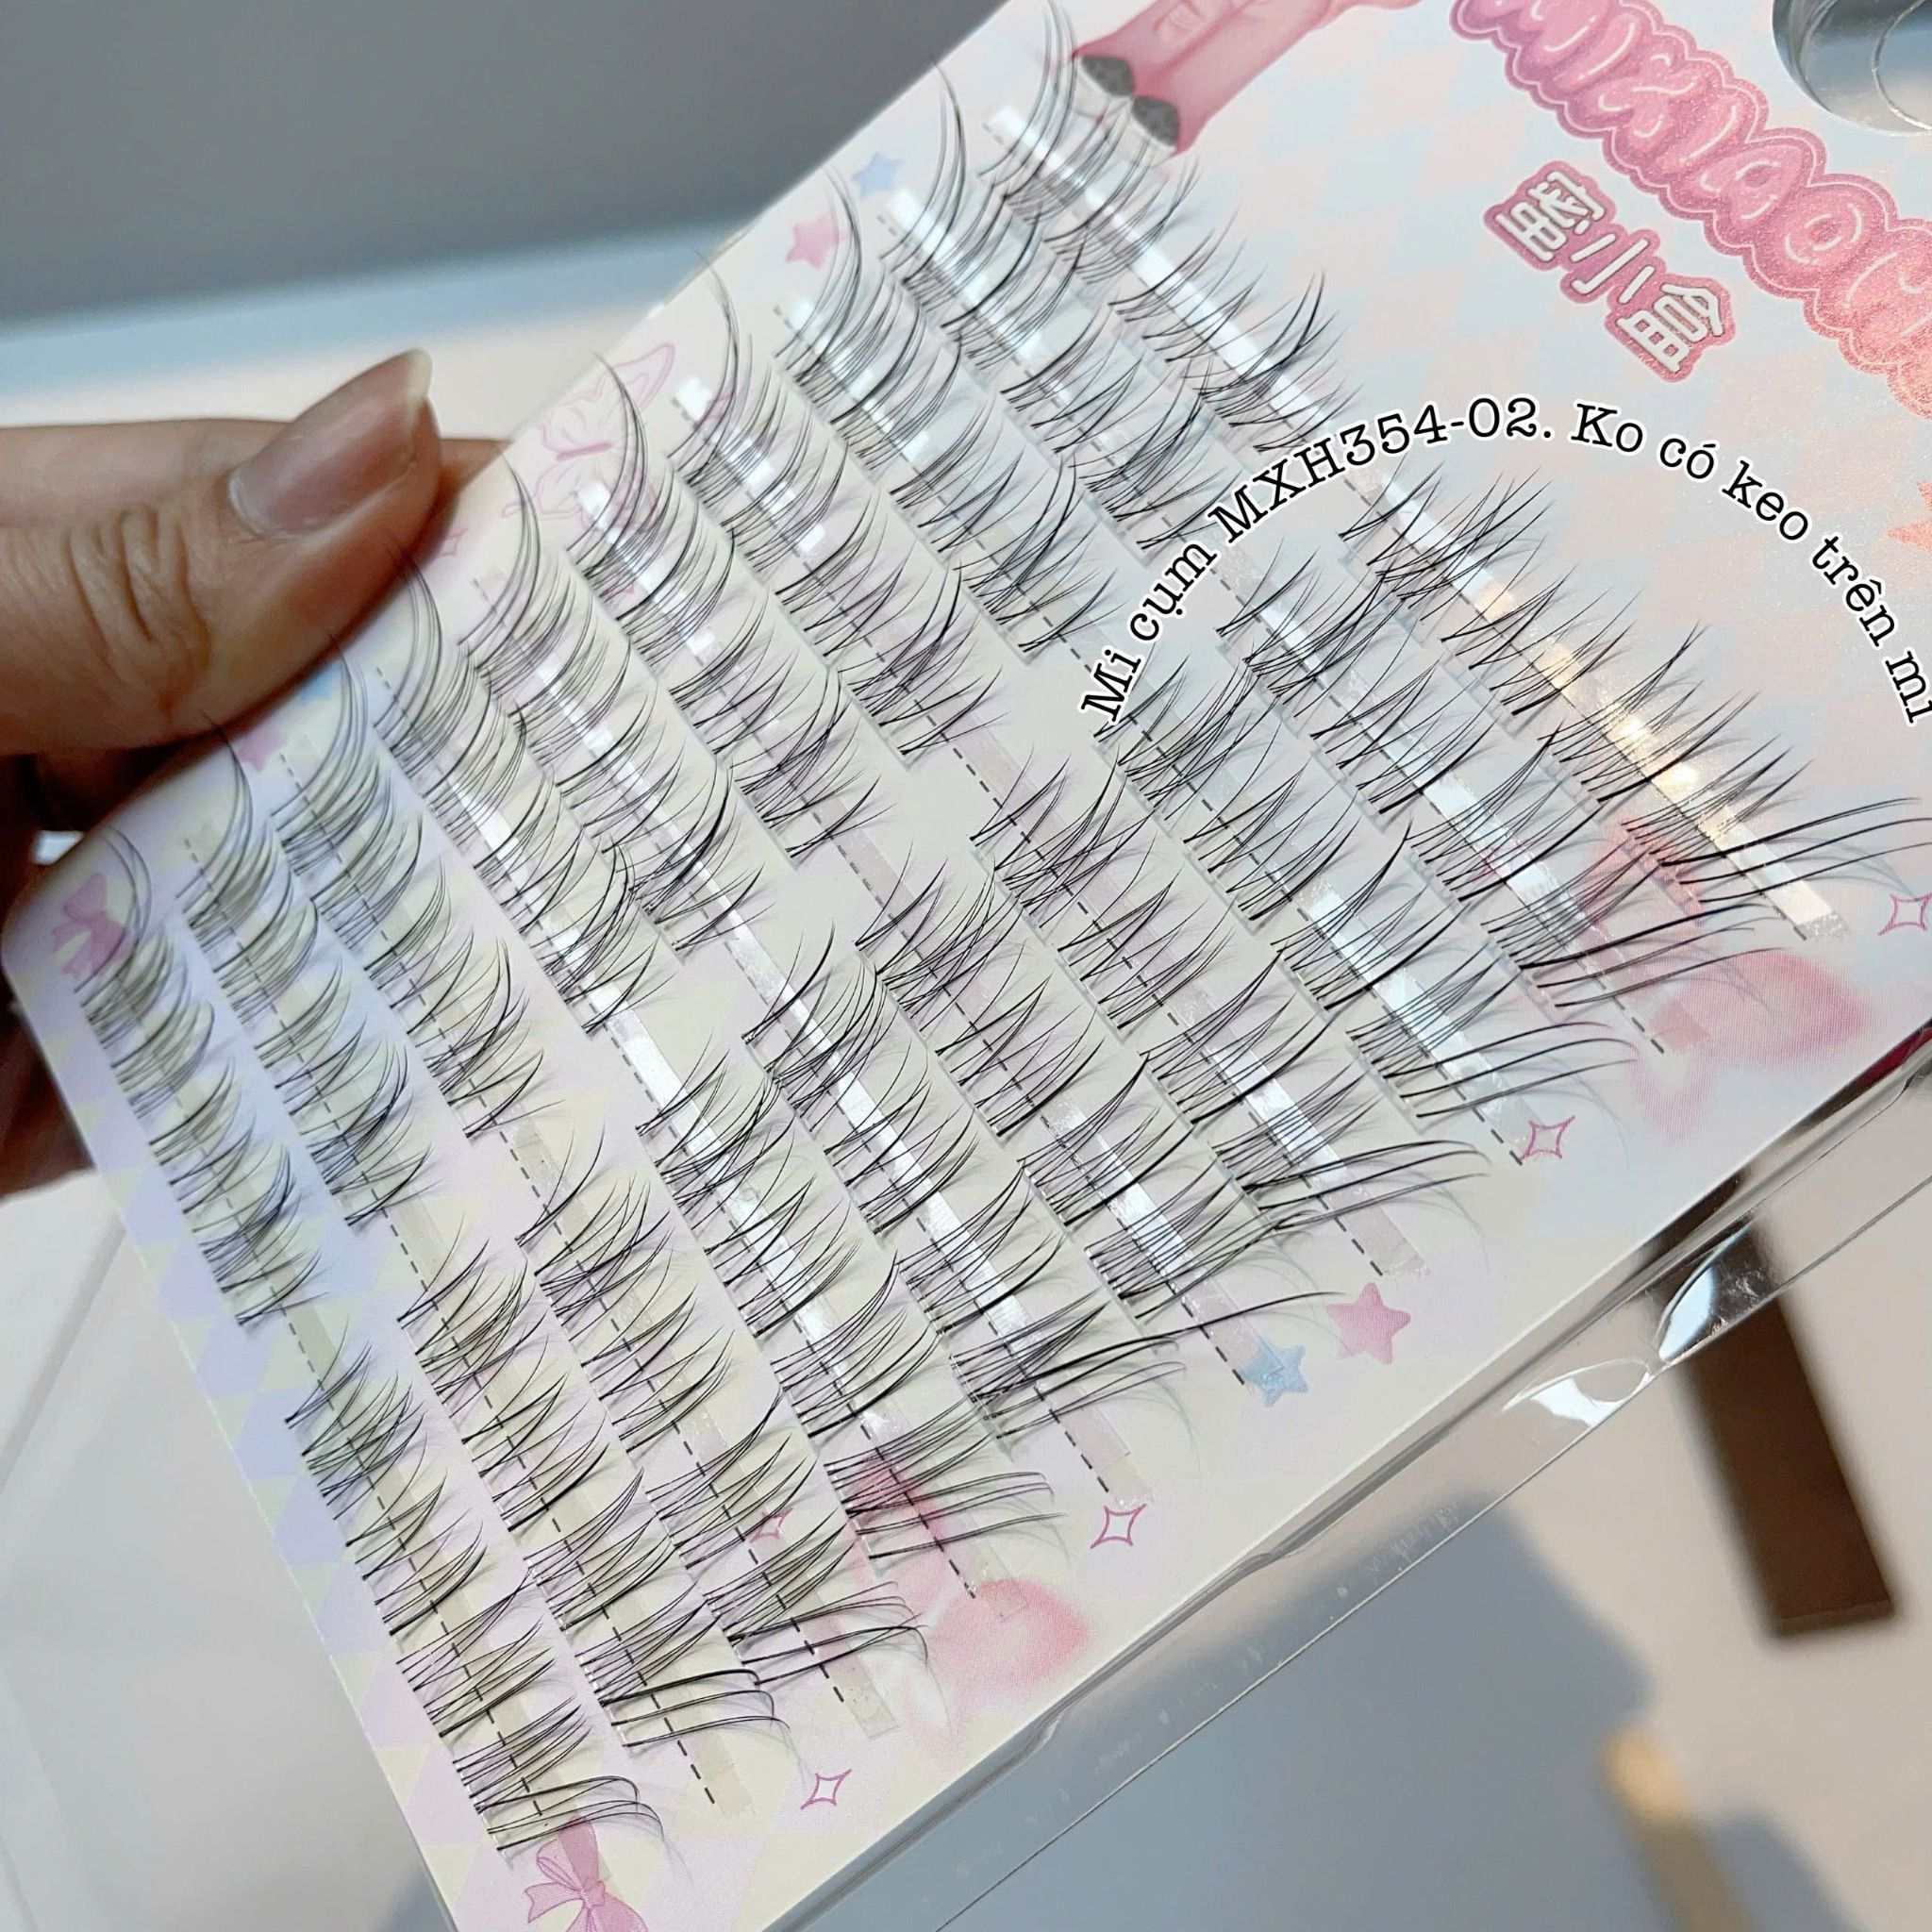 蜜小盒
Mi cụm MXH354-02. Ko có keo trên mi